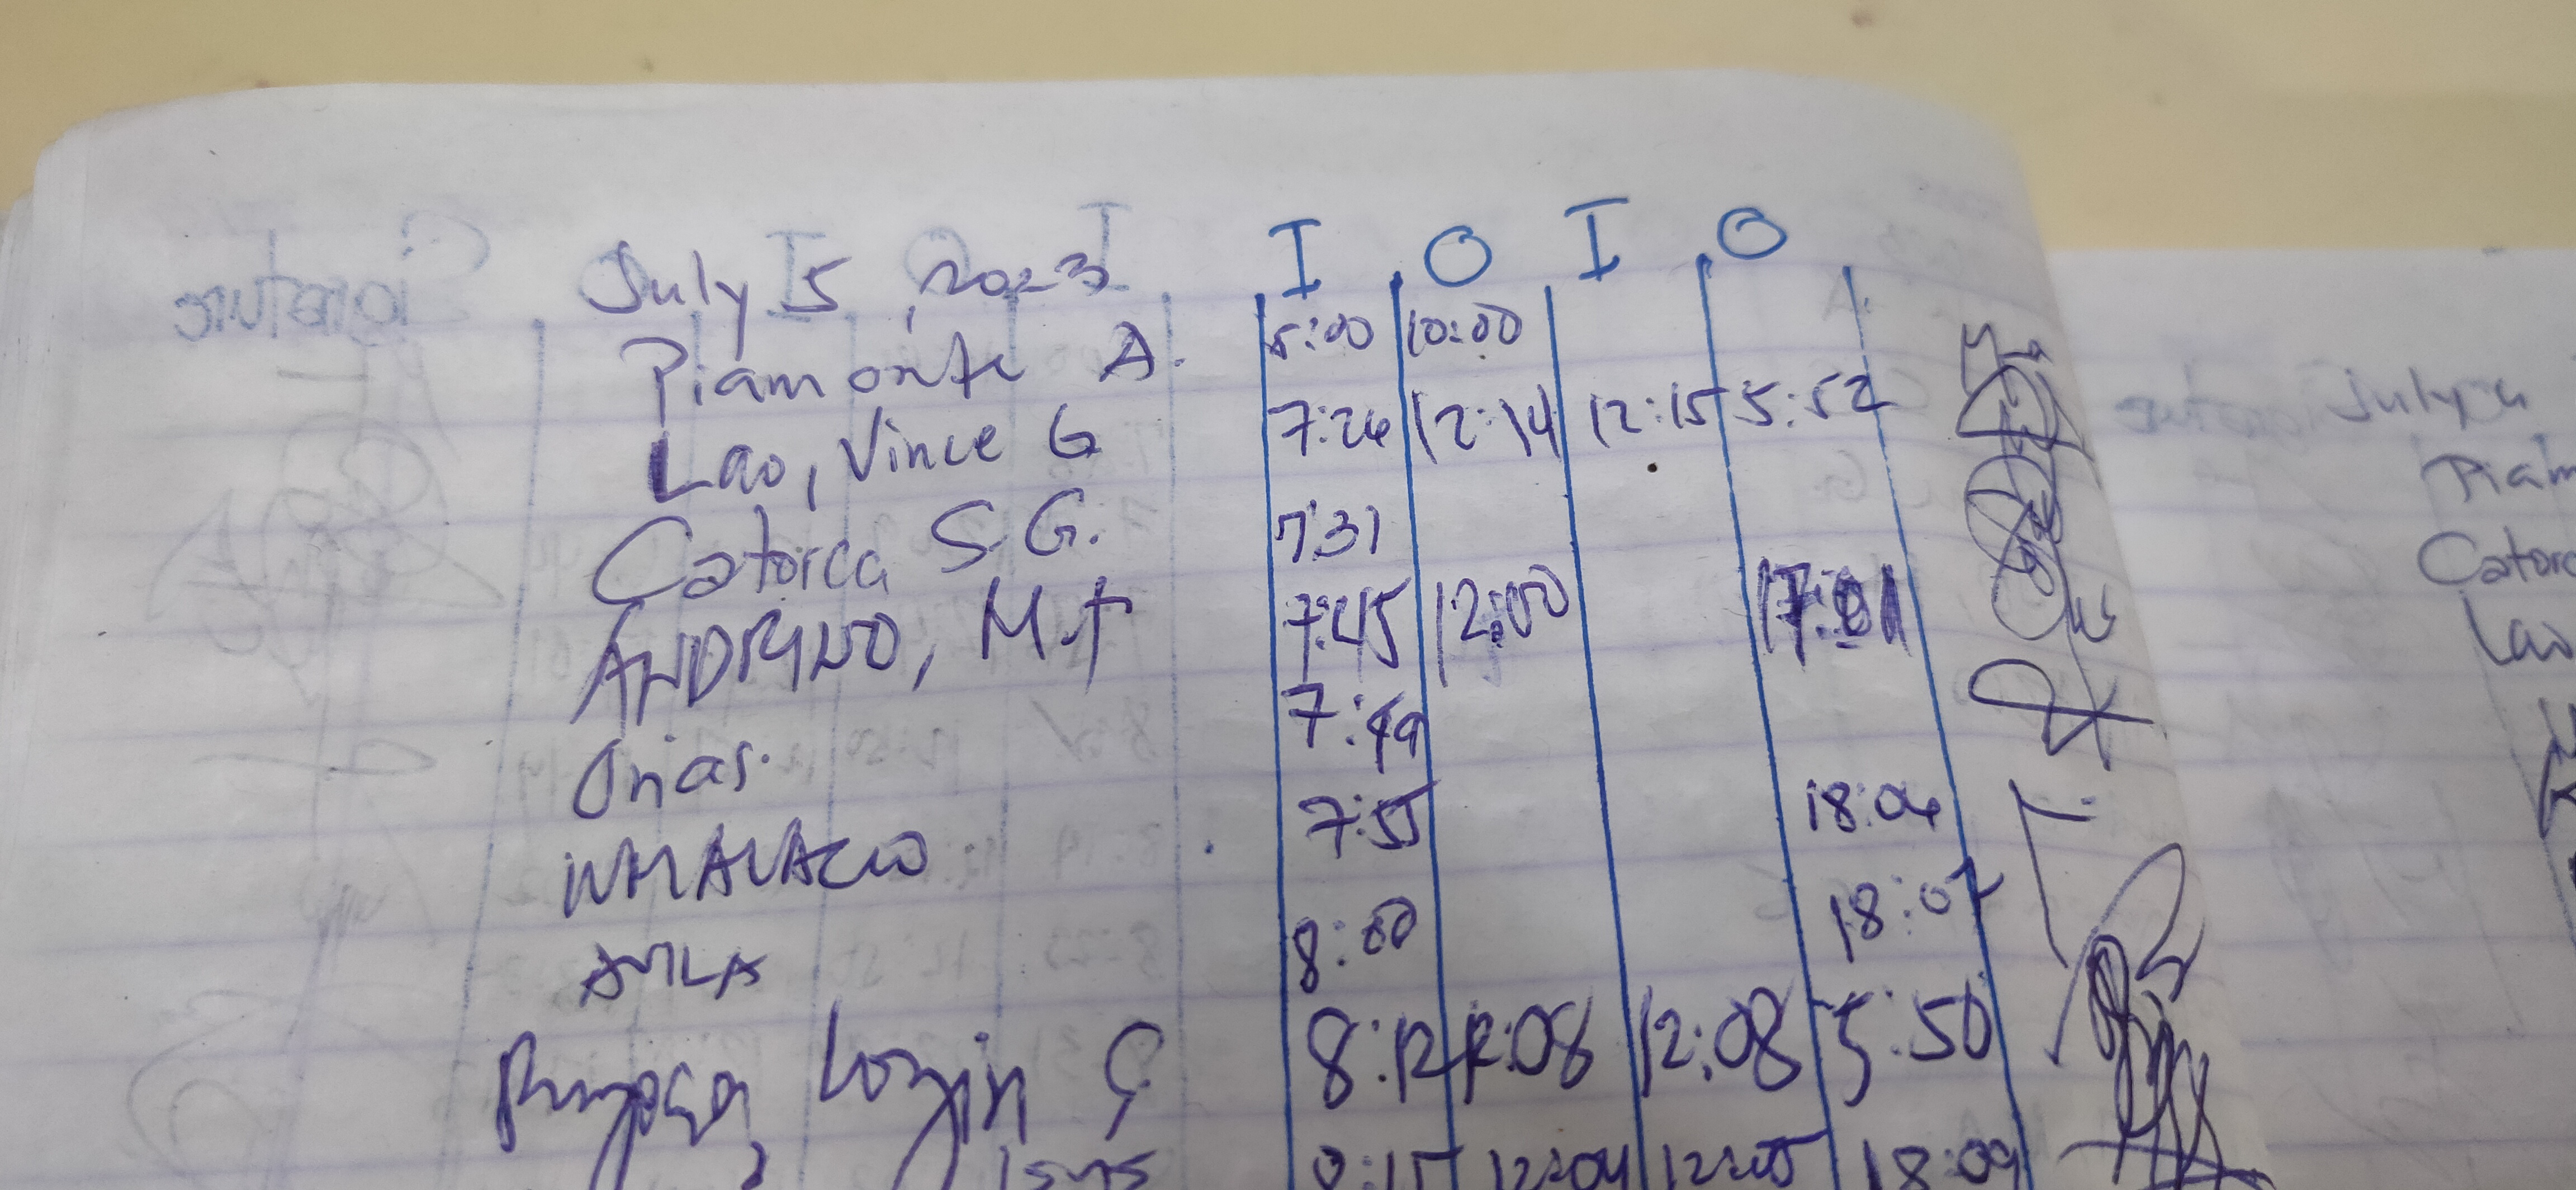 July 5, 2023 I O I O
Piamonte A. 5:00 10:00
Lao, Vince G 7:26 12:14 12:15 5:52
Catorca S.G. 7:31
ANDRINO, M.T 7:45 12:00 17:01
Orias. 7:49
7:55 18:04
8:00 18:07
8:12 12:08 12:08 5:50
8:15 12:04 12:05 18:09
Signature
July 4
Piam
Catorc
Lao